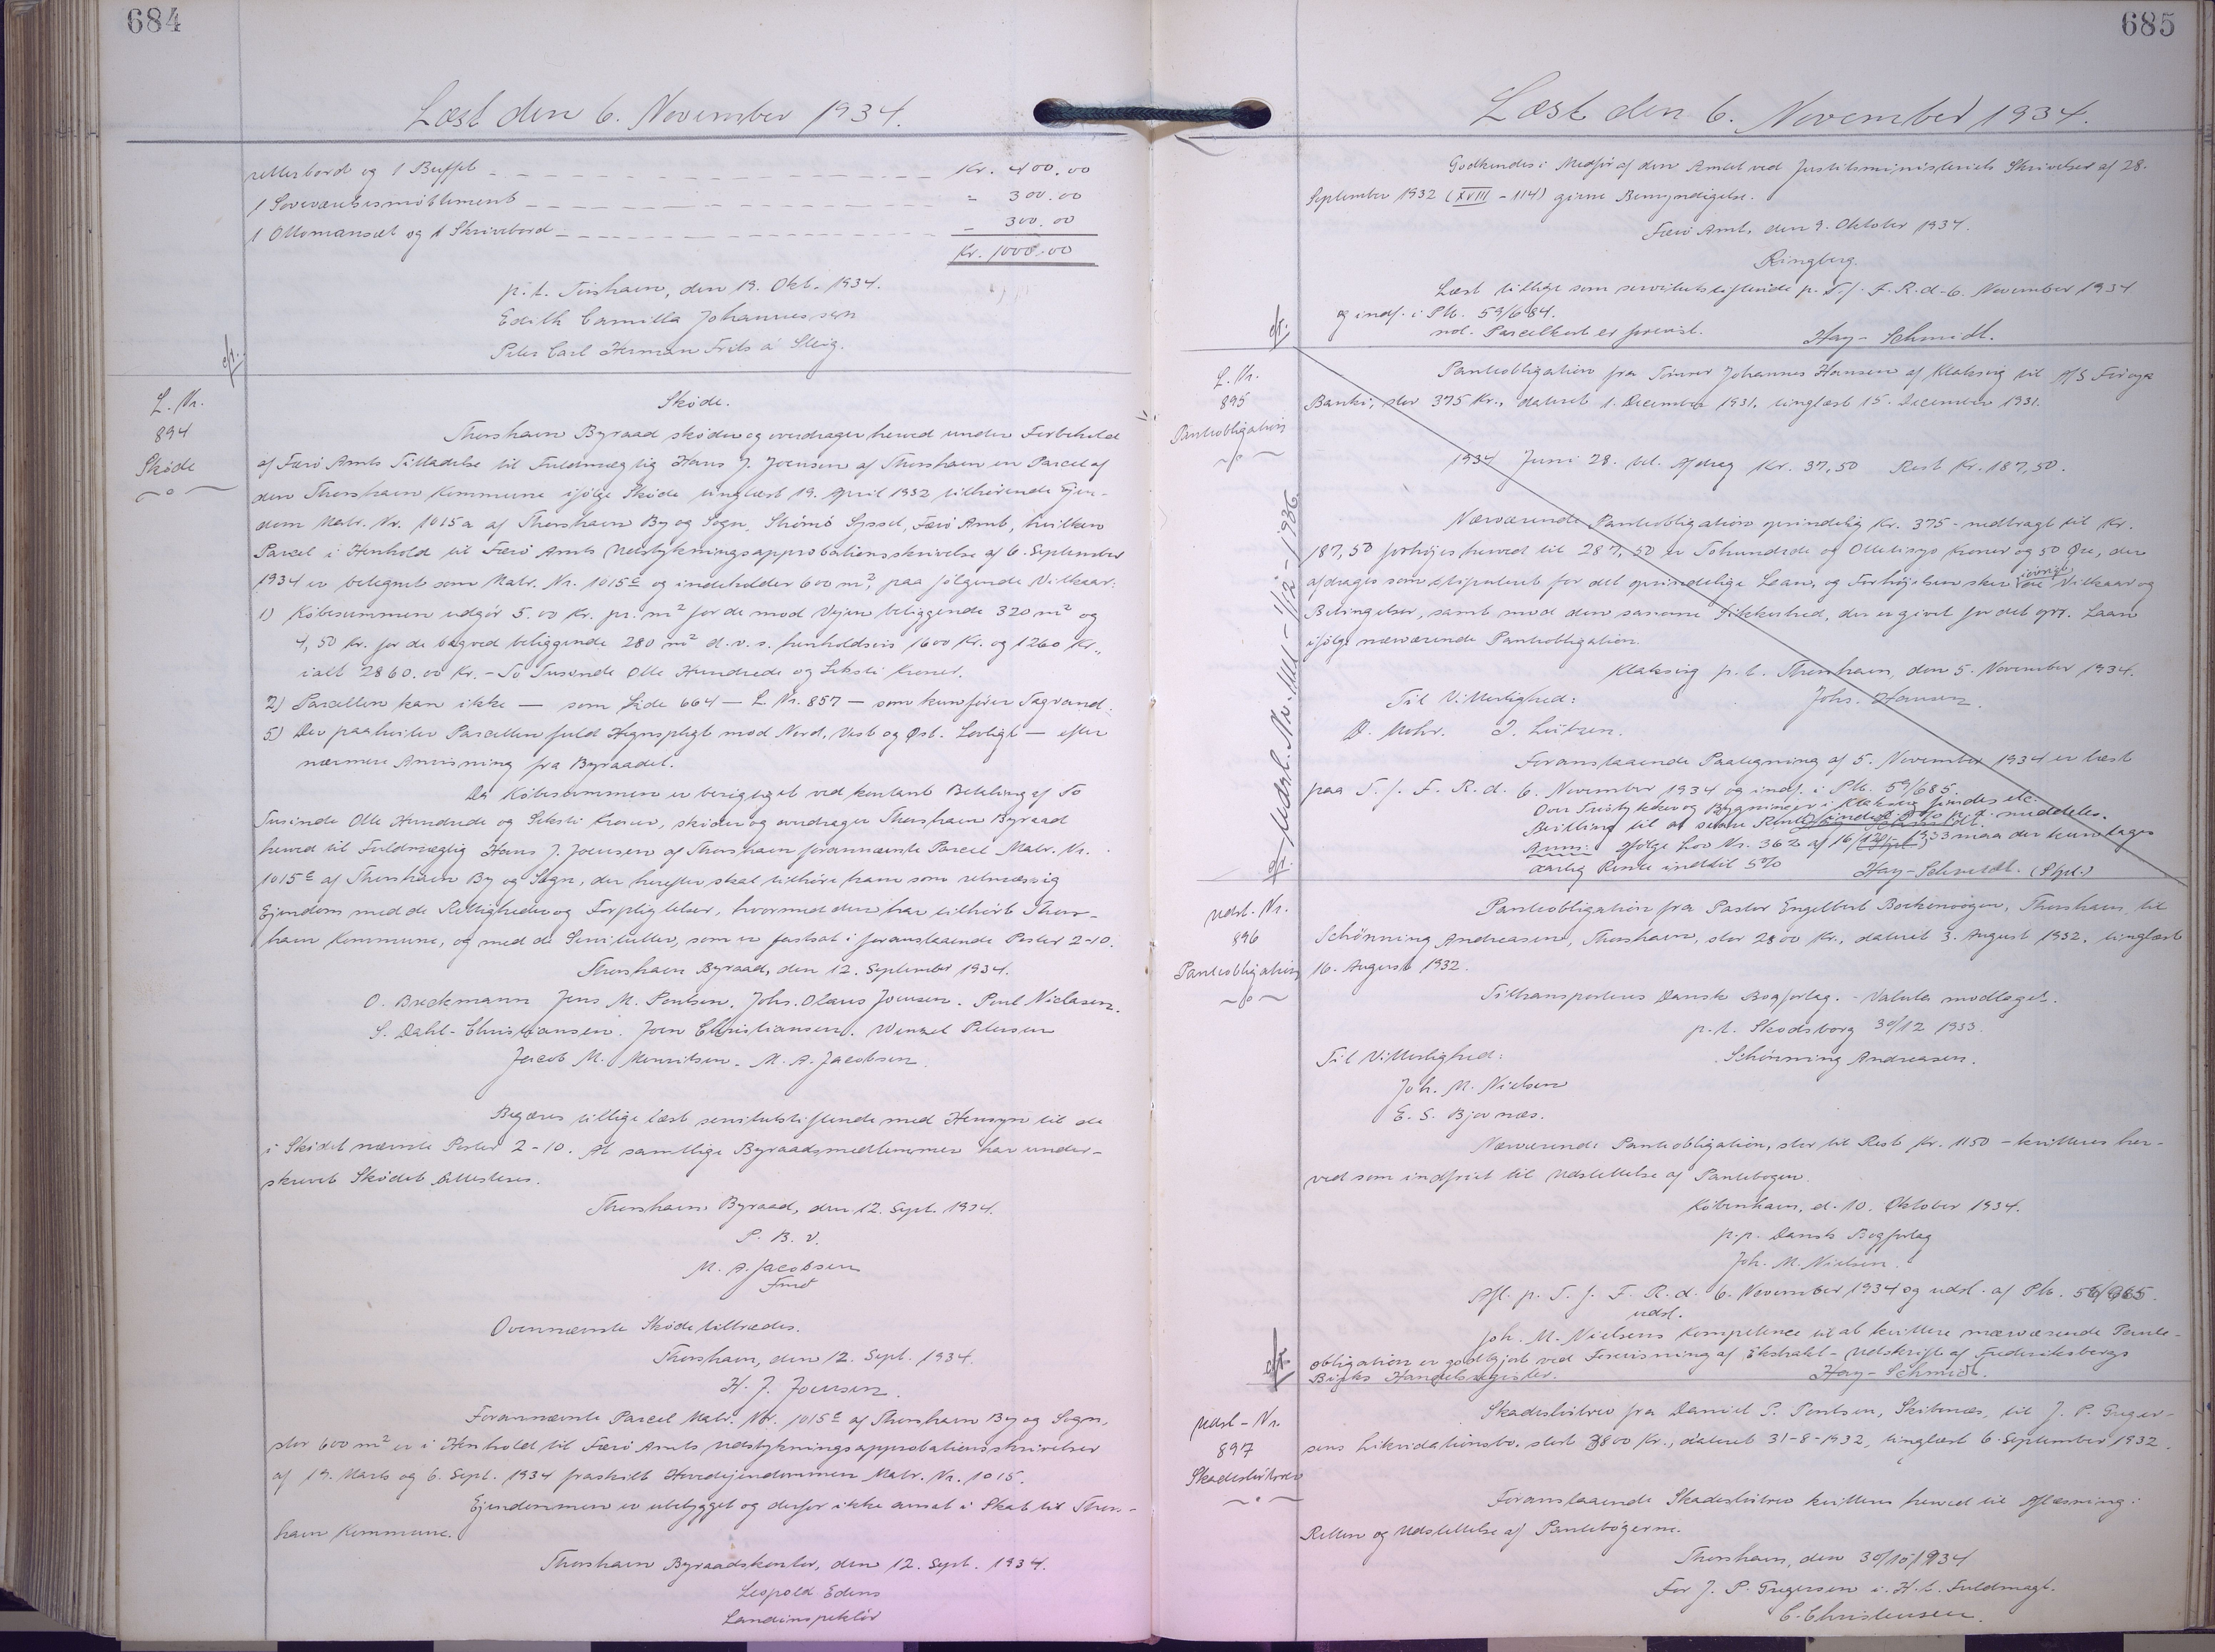 684
Læst den 6. November 1934.
rettebord og 1 Buffet Kr. 400.00
1 Soveværelsesmøblement - 300.00
1 Ottomansæt og 1 Skrivebord - 300.00
Kr. 1000.00
p. t. Torshavn, den 19. Okt. 1934.
Edith Camilla Johannessen
Peter Carl Herman Frits á Steig.
cfr.
L. Nr.
894
Skøde
Skøde.
Thorshavn Byraad skøder og overdrager herved under Forbehold
af Færø Amts Tilladelse til Fuldmægtig Hans J. Joensen af Thorshavn en Parcel af
den Thorshavn Kommune ifølge Skøde tinglæst 19. April 1932 tilhørende Ejen-
dom Matr. Nr. 1015a af Thorshavn By og Sogn, Strømø Syssel, Færø Amt, hvilken
Parcel i Henhold til Færø Amts Udstykningsapprobationsskrivelse af 6. September
1934 er betegnet som Matr. Nr. 1015c og indeholder 600 m², paa følgende Vilkaar:
1) Købesummen udgør 5.00 Kr. pr. m² for de mod Vejen beliggende 320 m² og
4,50 Kr. for de bagved beliggende 280 m² d. v. s. henholdsvis 1600 Kr. og 1260 Kr.,
ialt 2860.00 Kr. - To Tusinde Otte Hundrede og Seksti Kroner.
2) Parcellen kan ikke — som Side 664 — L. Nr. 857 — som kun fører Tagvand.
5) Der paahviler Parcellen fuld Hegnspligt mod Nord, Vest og Øst. Lovligt — efter
nærmere Anvisning fra Byraadet.
Da Købesummen er berigtiget ved kontant Betaling af To
Tusinde Otte Hundrede og Seksti Kroner, skøder og overdrager Thorshavn Byraad
herved til Fuldmægtig Hans J. Joensen af Thorshavn forannævnte Parcel Matr. Nr.
1015c af Thorshavn By og Sogn, der herefter skal tilhøre ham som retmæssig
Ejendom med de Rettigheder og Forpligtelser, hvormed den har tilhørt Thors-
havn Kommune, og med de Servitutter, som er fastsat i foranstaaende Poster 2-10.
Thorshavn Byraad, den 12. September 1934.
O. Breckmann Jens M. Poulsen. Johs. Olaus Joensen. Poul Niclasen.
S. Dahl-Christiansen. Joen Christiansen. Wenzel Petersen
Jacob M. Mouritsen. M. A. Jacobsen.
Begæres tillige læst servitutstiftende med Hensyn til de
i Skødet nævnte Poster 2-10. At samtlige Byraadsmedlemmer har under-
skrevet Skødet attesteres.
Thorshavn Byraad, den 12. Sept. 1934.
P. B. V.
M. A. Jacobsen
Fmd
Ovennævnte Skøde tiltrædes.
Thorshavn, den 12. Sept. 1934.
H. J. Joensen.
Forannævnte Parcel Matr. Nr. 1015c af Thorshavn By og Sogn,
stor 600 m² er i Henhold til Færø Amts Udstykningsapprobationsskrivelser
af 19. Marts og 6. Sept. 1934 fraskilt Hovedejendommen Matr. Nr. 1015.
Ejendommen er ubebygget og derfor ikke ansat i Skat til Thors-
havn Kommune.
Thorshavn Byraadskontor, den 12. Sept. 1934.
Leopold Edens
Landinspektør
685
Læst den 6. November 1934.
Godkendes i Medfør af den Amtet ved Justitsministeriets Skrivelse af 28.
September 1932 (XVIII - 114) givne Bemyndigelse.
Færø Amt, den 9. Oktober 1934.
Ringberg.
Læst tillige som servitutstiftende p. T. f. F. R. d. 6. November 1934
og indf. i Pb. 59/684.
not. Parcelkort er forevist. Hay-Schmidt.
cfr.
L. Nr.
895
Panteobligation
Panteobligation fra Tømrer Johannes Hansen af Klaksvig til A/S Føroya
Banki, stor 375 Kr., dateret 1. December 1931, tinglæst 15. December 1931.
1934 Juni 28. bet. Afdrag Kr. 37,50 Rest Kr. 187,50.
Nærværende Panteobligation oprindelig Kr. 375 - nedbragt til Kr.
187,50 forhøjes herved til 287,50 er Tohundrede og Ottetisyv Kroner og 50 Øre, der
afdrages som stipuleret for det oprindelige Laan, og Forhøjelsen sker iøvrigt paa Vilkaar og
Betingelser, samt mod den samme Sikkerhed, der er givet for det opr. Laan
ifølge nærværende Panteobligation.
Klaksvig p. t. Thorshavn, den 5. November 1934.
Til Vitterlighed: Johs. Hansen.
D. Mohr. J. Lützen.
Foranstaaende Paategning af 5. November 1934 er læst
paa T. f. F. R. d. 6. November 1934 og indf. i Pb. 59/685.
Over Grundstykket og Bygninger i Klaksvig findes etc.
Bevilling til at svare Rente
Anm: Ifølge Lov Nr. 362 af 16/12 1933 maa der kun tages
aarlig Rente indtil 5%. Hay-Schmidt. (Stpl.)
Udsl. Nr. 1111 - 1/12 - 1936.
cfr.
Udsl. Nr.
896
Panteobligation
Panteobligation fra Pastor Engelbert Bockenoogen, Thorshavn til
Schønning Andreasen, Thorshavn, stor 2800 Kr., dateret 3. August 1932, tinglæst
16. August 1932.
Tiltransporteres Dansk Bogforlag. - Valuta modtaget.
p. t. Skodsborg 30/12 1933.
Til Vitterlighed: Schønning Andreasen.
Joh. M. Nielsen
E. S. Bjørnæs.
Nærværende Panteobligation, stor til Rest Kr. 1150 - kvitteres her-
ved som indfriet til Udslettelse af Pantebogen.
København, d. 10. Oktober 1934.
p.p. Dansk Bogforlag
Joh. M. Nielsen.
Afl. p. T. f. F. R. d. 6. November 1934 og udsl. af Pb.
udsl.
Joh. M. Nielsens Kompetence til at kvittere nærværende Pante-
obligation er godtgjort ved Forevisning af Ekstrakt-Udskrift af Frederiksbergs
Birks Handelsregister. Hay-Schmidt.
cfr.
Udsl-Nr.
897
Skadesløsbrev
Skadesløsbrev fra Daniel P. Poulsen, Skibenæs, til J. P. Greger-
sens Likvidationsbo, stort 3800 Kr., dateret 31-8-1932, tinglæst 6. September 1932.
Foranstaaende Skadesløsbrev kvitteres herved til Aflæsning i
Retten og Udslettelse af Pantebøgerne.
Thorshavn, den 30/10 1934
For J. P. Gregersen i. H. t. Fuldmagt.
C. Christensen.